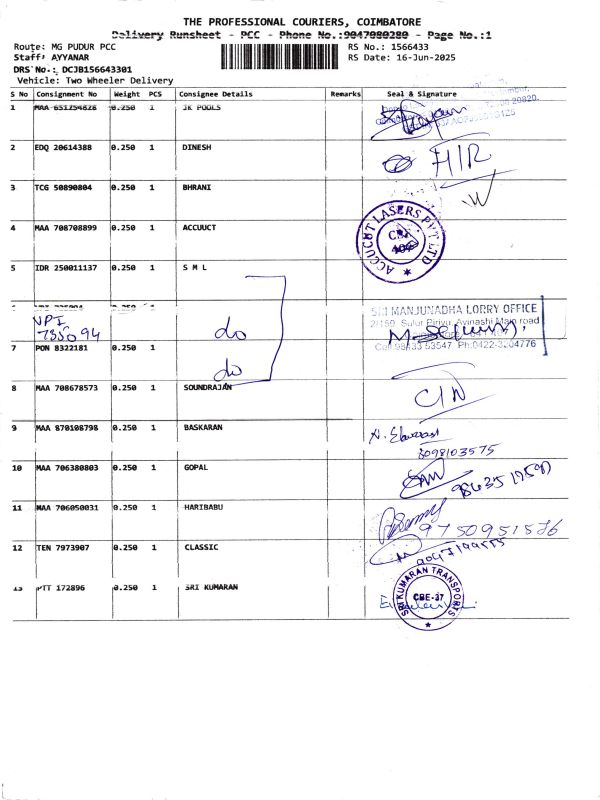 THE PROFESSIONAL COURIERS, COIMBATORE
Delivery Runsheet - PCC - Phone No.:9047080280 - Page No.:1
Route: MG PUDUR PCC RS No.: 1566433
Staff: AYYANAR RS Date: 16-Jun-2025
DRS No.: DCJB156643301
Vehicle: Two Wheeler Delivery
S No Consignment No Weight PCS Consignee Details Remarks Seal & Signature
1 MAA 651254828 0.250 1 JK POOLS
2 EDQ 20614388 0.250 1 DINESH
3 TCG 50890804 0.250 1 BHRANI
4 MAA 708708899 0.250 1 ACCUUCT
ACCUCUT LASERS PVT LTD
5 IDR 250011137 0.250 1 S M L
VPI
735094 do
SRI MANJUNADHA LORRY OFFICE
2/159, Sulur Pirivu, Avinashi Main road
Cell:98433 53547 Ph:0422-3204776
7 PON 8322181 0.250 1 do
8 MAA 708678573 0.250 1 SOUNDRAJAN
9 MAA 870108798 0.250 1 BASKARAN
8098103575
10 MAA 706380803 0.250 1 GOPAL
11 MAA 706050031 0.250 1 HARIBABU
9750951526
12 TEN 7973907 0.250 1 CLASSIC
13 PTT 172896 0.250 1 SRI KUMARAN
SRI KUMARAN TRANSPORTS
CBE-37